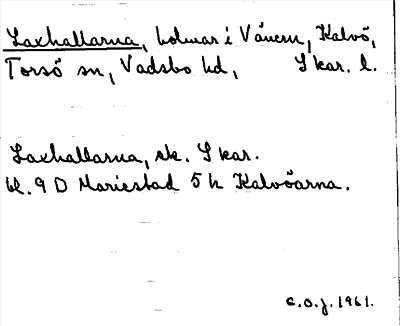 Laxhallarna, holmar i Vänern, Kalvö,
Torsö sn, Vadsbo hd, Skar. l.
Laxhallarna, sk. Skar.
bl. 9 D Mariestad 5 h Kalvöarna.
C.O.J. 1961.